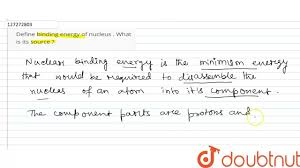 127272803
Define binding energy of nucleus . What
is its source ?
Nuclear binding energy is the minimum energy
that would be required to disassemble the
nucleus of an atom into it's component.
The component parts are protons and
doubtnut